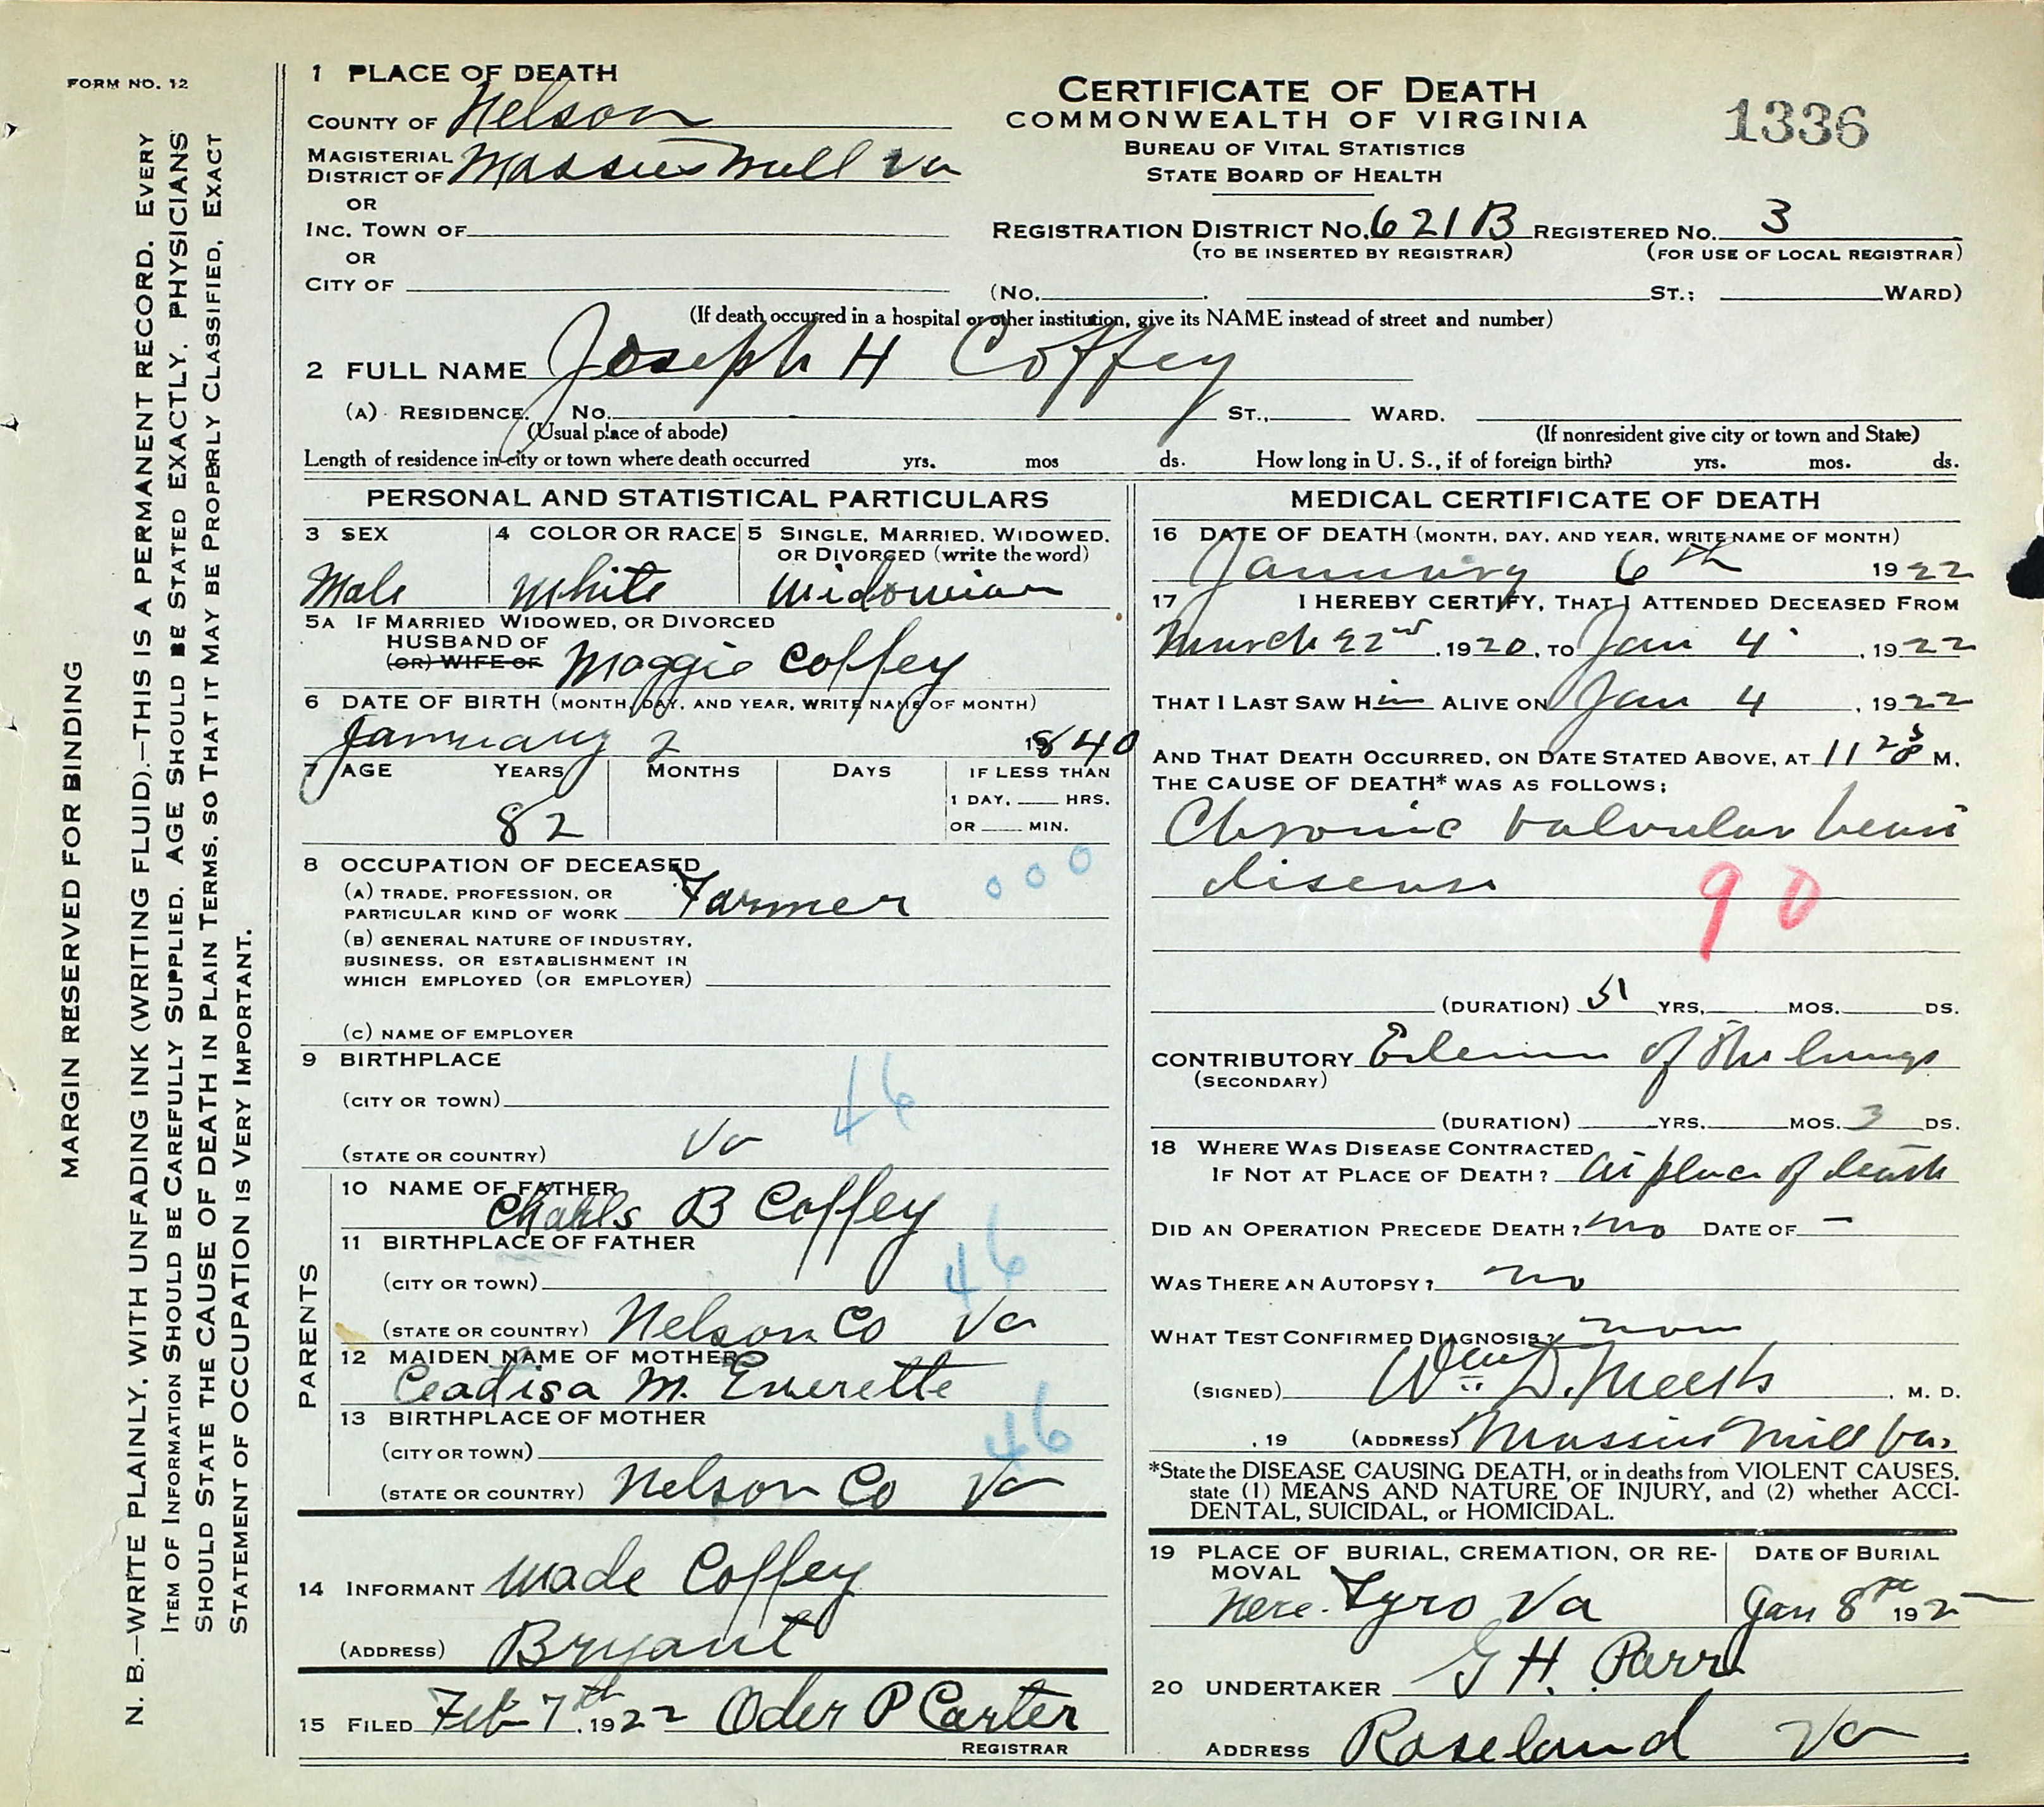 FORM NO. 12
MARGIN RESERVED FOR BINDING
N. B.—WRITE PLAINLY, WITH UNFADING INK (WRITING FLUID).—THIS IS A PERMANENT RECORD. EVERY
ITEM OF INFORMATION SHOULD BE CAREFULLY SUPPLIED. AGE SHOULD BE STATED EXACTLY. PHYSICIANS
SHOULD STATE THE CAUSE OF DEATH IN PLAIN TERMS, SO THAT IT MAY BE PROPERLY CLASSIFIED, EXACT
STATEMENT OF OCCUPATION IS VERY IMPORTANT.
1 PLACE OF DEATH
COUNTY OF Nelson
MAGISTERIAL
DISTRICT OF Massies Mill Va
OR
INC. TOWN OF
OR
CITY OF
CERTIFICATE OF DEATH
COMMONWEALTH OF VIRGINIA
BUREAU OF VITAL STATISTICS
STATE BOARD OF HEALTH
1336
REGISTRATION DISTRICT NO. 621B REGISTERED NO. 3
(TO BE INSERTED BY REGISTRAR) (FOR USE OF LOCAL REGISTRAR)
(NO. ST.; WARD)
(If death occurred in a hospital or other institution, give its NAME instead of street and number)
2 FULL NAME Joseph H Coffey
(A) RESIDENCE. NO. ST., WARD.
(Usual place of abode) (If nonresident give city or town and State)
Length of residence in city or town where death occurred yrs. mos ds. How long in U. S., if of foreign birth? yrs. mos. ds.
PERSONAL AND STATISTICAL PARTICULARS
3 SEX 4 COLOR OR RACE 5 SINGLE, MARRIED, WIDOWED,
OR DIVORCED (write the word)
Male White
5A IF MARRIED WIDOWED, OR DIVORCED
HUSBAND OF
(OR) WIFE OF Maggie Coffey
6 DATE OF BIRTH (MONTH, DAY, AND YEAR, WRITE NAME OF MONTH)
January 2 1840
7 AGE YEARS MONTHS DAYS IF LESS THAN
1 DAY, HRS.
OR MIN.
82
8 OCCUPATION OF DECEASED
(A) TRADE, PROFESSION, OR
PARTICULAR KIND OF WORK Farmer
000
(B) GENERAL NATURE OF INDUSTRY,
BUSINESS, OR ESTABLISHMENT IN
WHICH EMPLOYED (OR EMPLOYER)
(C) NAME OF EMPLOYER
9 BIRTHPLACE
(CITY OR TOWN)
46
(STATE OR COUNTRY) Va
PARENTS
10 NAME OF FATHER
Charls B Coffey
11 BIRTHPLACE OF FATHER
(CITY OR TOWN)
46
(STATE OR COUNTRY) Nelson Co Va
12 MAIDEN NAME OF MOTHER
M. Everette
13 BIRTHPLACE OF MOTHER
(CITY OR TOWN)
46
(STATE OR COUNTRY) Nelson Co Va
14 INFORMANT Wade Coffey
(ADDRESS) Bryant
15 FILED Feb 7th, 1922 Oder P Carter
REGISTRAR
MEDICAL CERTIFICATE OF DEATH
16 DATE OF DEATH (MONTH, DAY, AND YEAR, WRITE NAME OF MONTH)
January 6th 1922
17 I HEREBY CERTIFY, THAT I ATTENDED DECEASED FROM
March 22nd, 1920, TO Jan 4, 1922
THAT I LAST SAW Him ALIVE ON Jan 4, 1922
AND THAT DEATH OCCURRED, ON DATE STATED ABOVE, AT 11 M.
THE CAUSE OF DEATH* WAS AS FOLLOWS:
Chronic valvular heart
disease
90
(DURATION) YRS. MOS. DS.
CONTRIBUTORY Edema of the lungs
(SECONDARY)
(DURATION) YRS. MOS. 3 DS.
18 WHERE WAS DISEASE CONTRACTED
IF NOT AT PLACE OF DEATH? At place of death
DID AN OPERATION PRECEDE DEATH? no DATE OF —
WAS THERE AN AUTOPSY? no
WHAT TEST CONFIRMED DIAGNOSIS? none
(SIGNED) Wm D. Meeks, M. D.
, 19 (ADDRESS) Massies Mill Va.
*State the DISEASE CAUSING DEATH, or in deaths from VIOLENT CAUSES,
state (1) MEANS AND NATURE OF INJURY, and (2) whether ACCI-
DENTAL, SUICIDAL, or HOMICIDAL.
19 PLACE OF BURIAL, CREMATION, OR RE- DATE OF BURIAL
MOVAL
Nere. Tyro Va Jan 8 192
20 UNDERTAKER G H. Parr
ADDRESS Roseland Va